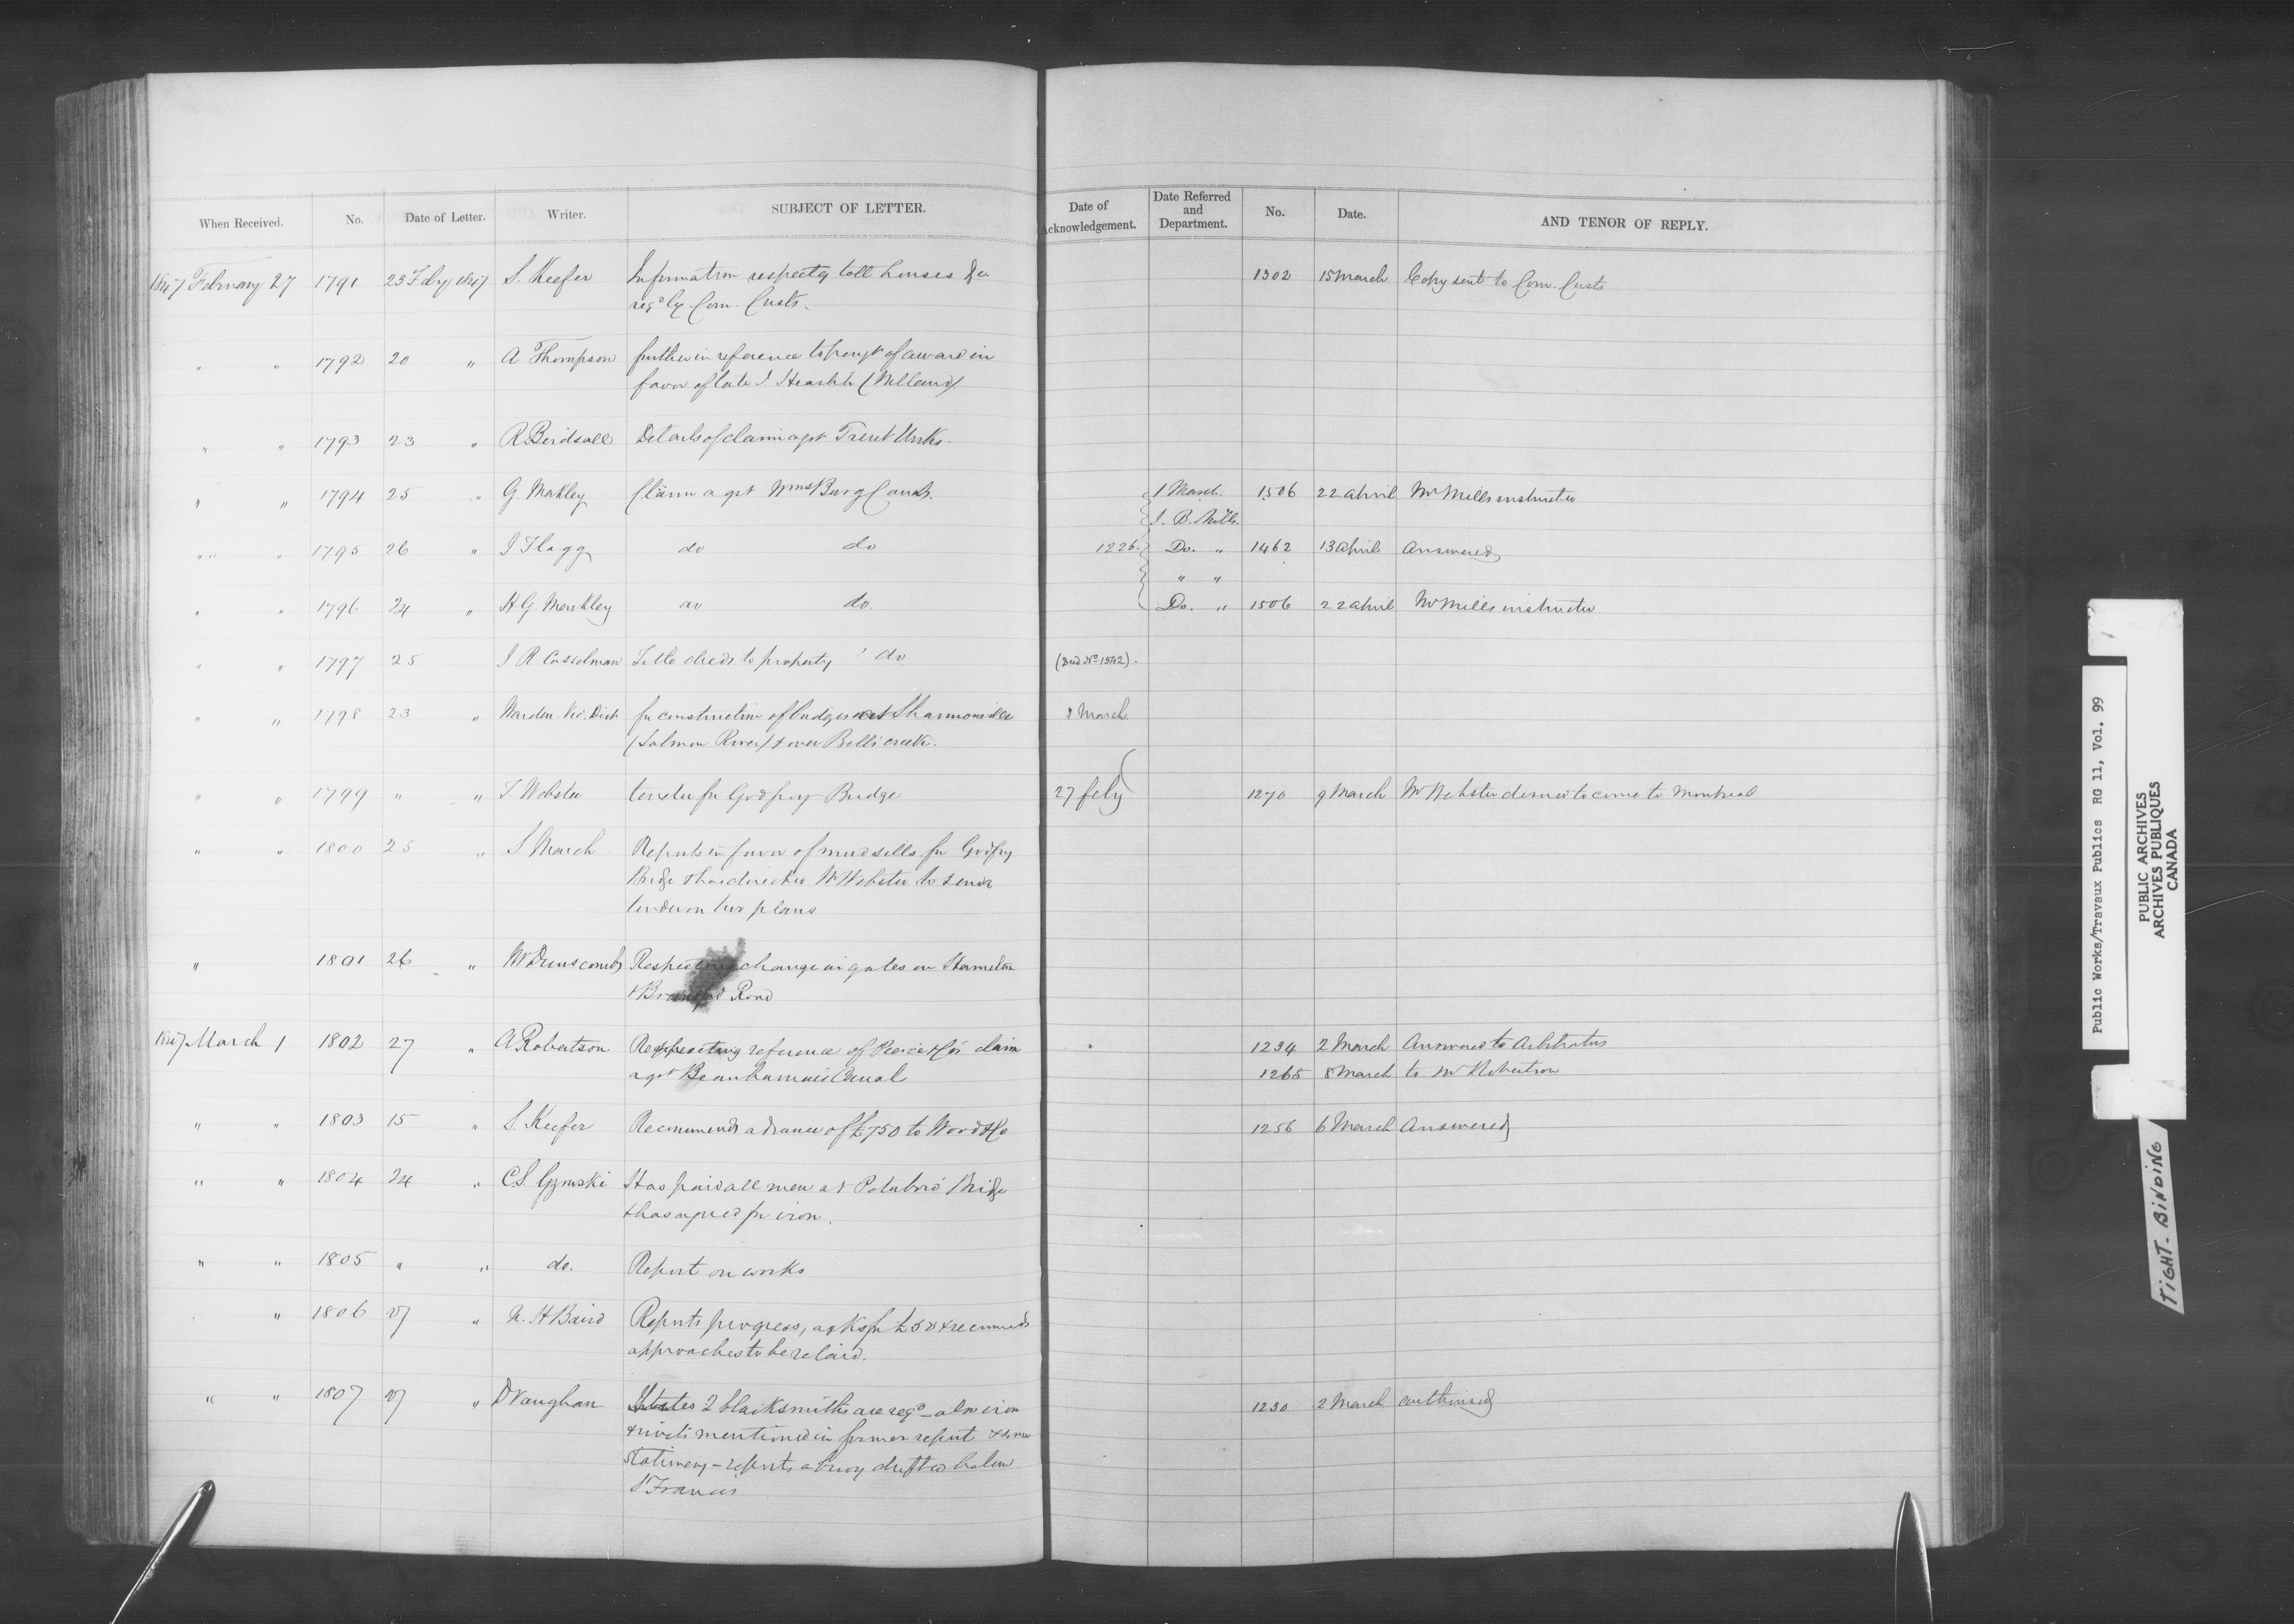 When Received. No. Date of Letter. Writer. SUBJECT OF LETTER. Date of Acknowledgement. Date Referred and Department. No. Date. AND TENOR OF REPLY.
1847 February 27 1791 23 Feby 1847 S. Keefer Information respectg toll houses &c 1302 15 March Copy sent to Com. Custs
reqd by Com. Custs.
" " 1792 20 " A Thompson further in reference to paymt of award in
favor of late J (Welland)
" " 1793 23 " R Birdsall Details of claim agst Trent Works.
" " 1794 25 " G. Markley Claim agst Wmsburg Canal. 1 March. 1506 22 April Mr Mills instructed
J. B. Mills.
" " 1795 26 " J Flagg do do 1226. Do. " 1462 13 April Answered
" "
" " 1796 24 " H G. Markley do do. Do. " 1506 22 April Mr Mills instructed
" " 1797 25 J R Casselman Title deeds to property do (Deed No 1542).
" " 1798 23 " Warden Vic. Dist for construction of bridges at Shannonville 2 March
(Salmon River) & over Bells creek.
" " 1799 " " J Webster tender for Godfroy Bridge 27 feby 1270 9 March Mr Webster desired to come to Montreal
" " 1800 25 " S March Reports in favor of mudsills for Godfroy
Bridge & has directed Mr Webster to send
tender on two plans
" 1801 26 " W Dunscomb Respecting change in gates on Hamilton
& Brantford Road
1847 March 1 1802 27 " A Robertson Respecting reference of Pierce & Co's claim 1234 2 March Answered to Arbitrators
agst Beauharnais Canal 1265 8 March to Mr Robertson
" " 1803 15 " S Keefer Recommends advance of £750 to Wood & Co 1256 6 March Answered
" " 1804 24 " C.S. Gzowski Has paid all men at Peterboro' Bridge
& has agreed for iron.
" " 1805 " " do. Report on works
" 1806 27 " N. H Baird Reports progress, asks for £50 & recommends
approaches to be relaid.
" " 1807 27 " D Vaughan States 2 blacksmiths are reqd - also iron 1230 2 March authorised
& rivets mentioned in former report & some
stationery - reports a buoy drifted below
St Francis
Public Works/Travaux Publics RG 11, Vol. 99
PUBLIC ARCHIVES
ARCHIVES PUBLIQUES
CANADA
TIGHT-BINDING